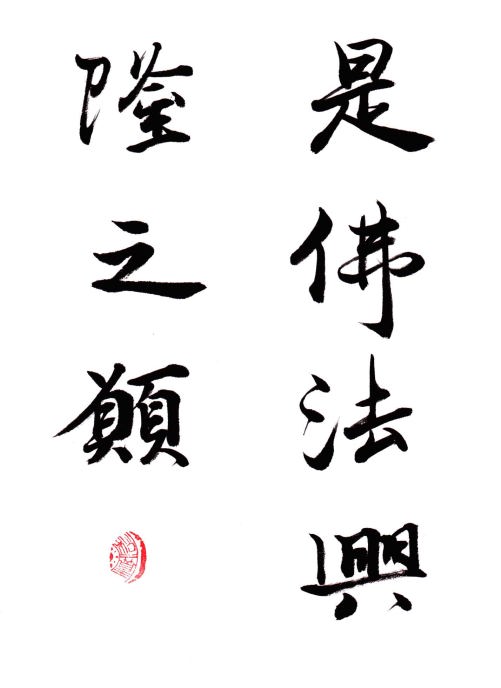 是佛法興
隆之願